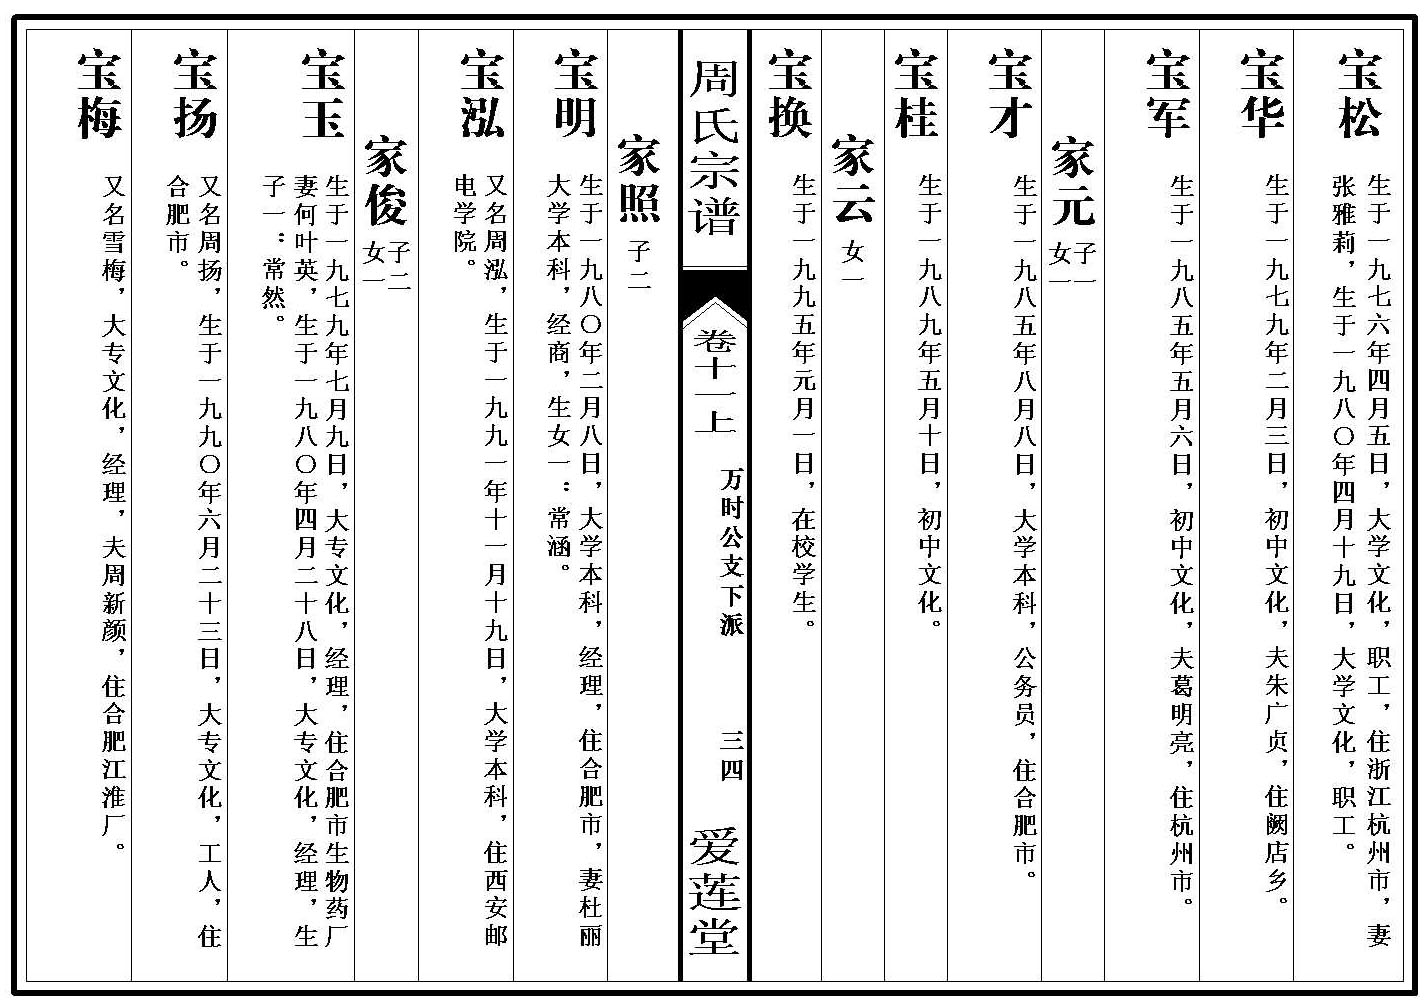 宝松
生于一九七六年四月五日，大学文化，职工，住浙江杭州市，妻
张雅莉，生于一九八〇年四月十九日，大学文化，职工。
宝华
生于一九七九年二月三日，初中文化，夫朱广贞，住阙店乡。
宝军
生于一九八五年五月六日，初中文化，夫葛明亮，住杭州市。
家元
子一
女一
宝才
生于一九八五年八月八日，大学本科，公务员，住合肥市。
宝桂
生于一九八九年五月十日，初中文化。
家云
女一
宝换
生于一九九五年元月一日，在校学生。
周氏宗谱
卷十一上
万时公支下派
三四
爱莲堂
家照
子二
宝明
生于一九八〇年二月八日，大学本科，经理，住合肥市，妻杜丽
大学本科，经商，生女一：常涵。
宝泓
又名周泓，生于一九九一年十一月十九日，大学本科，住西安邮
电学院。
家俊
子二
女一
宝玉
生于一九七九年七月九日，大专文化，经理，住合肥市生物药厂
妻何叶英，生于一九八〇年四月二十八日，大专文化，经理，生
子一：常然。
宝扬
又名周扬，生于一九九〇年六月二十三日，大专文化，工人，住
合肥市。
宝梅
又名雪梅，大专文化，经理，夫周新颜，住合肥江淮厂。